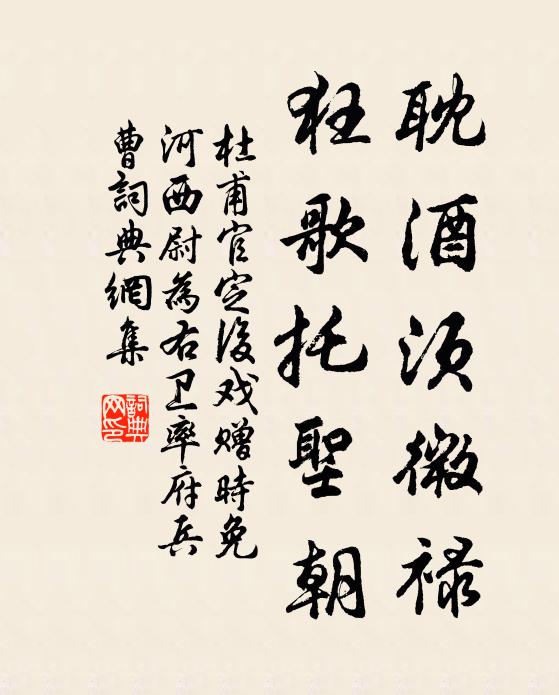 耽酒须微禄
狂歌托聖朝
杜甫官定後戏赠時免
河西尉為右卫率府兵
曹詞典網集
詞典网印